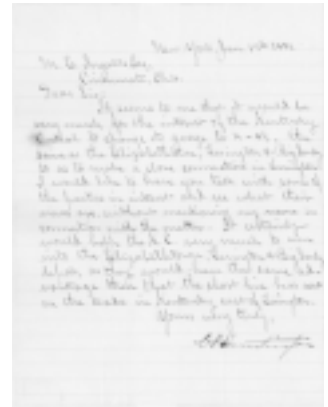 New York, Jan
M. E. Ingalls Esq.
Cincinnati, Ohio.
Dear Sir:
It seems to me that it would be
very much for the interest of the Kentucky
Central to change its gauge to 4-8½, the
same as the Elizabethtown, Lexington & Big Sandy
so as to make a close connection in Lexington
I would like to have you talk with some of
the parties in interest and see what their
views are, without mentioning my name in
connection with the matter. It certainly
would help the K. C. very much to run
into the Elizabethtown, Lexington & Big Sandy
as they would have the same ad-
vantage then that the short line has
on the trade in Kentucky east of Lexington.
Yours very truly,
C. P. Huntington